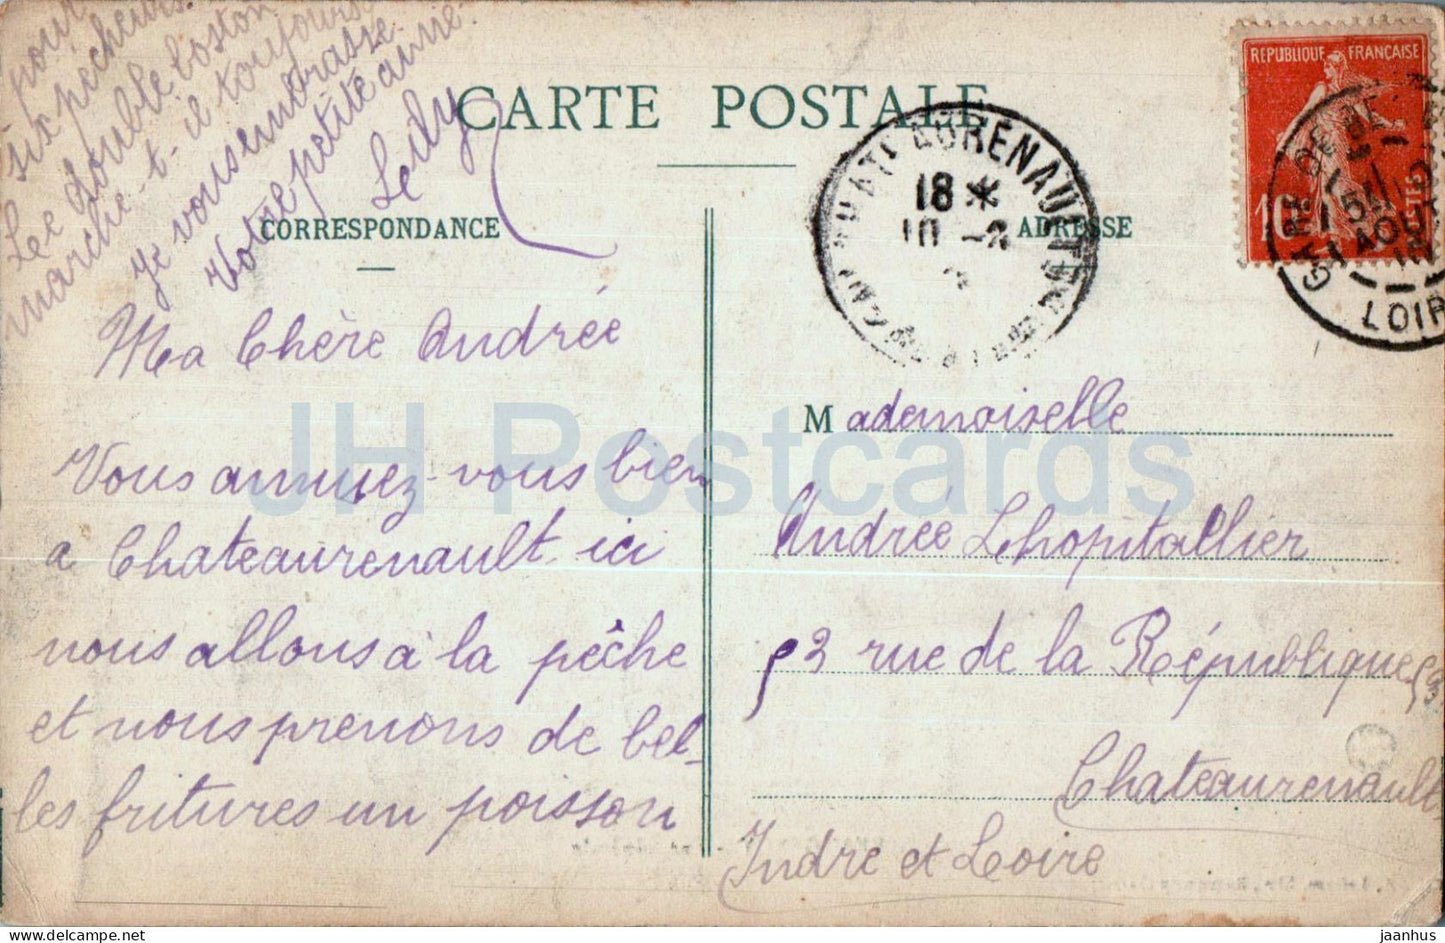 CARTE POSTALE
CORRESPONDANCE
ADRESSE
Ma Chère Andrée
Vous annuiez-vous bien
a Chateaurenault ici
nous allons à la pêche
et nous prenons de bel-
les fritures un poisson
pour
six pécheurs.
Le double boston
marche-t-il toujours
je vous embrasse
Votre petite amie
Ledy
Mademoiselle
Andrée Lhopitallier
53 rue de la République 53
Chateaurenault
Indre et Loire
REPUBLIQUE FRANÇAISE
10
POSTES
GARE DE
AOUT
LOIR
AURENAULT
18 *
10 -8
JH Postcards
www.delcampe.net
jaanhus